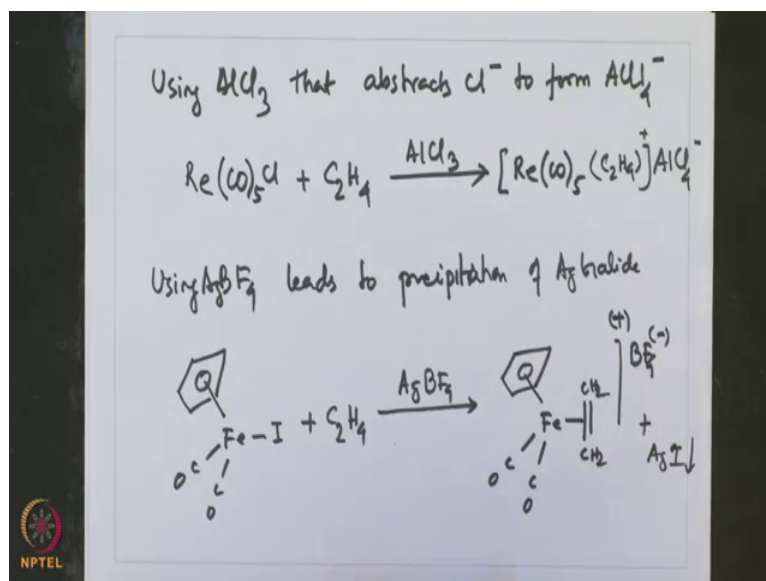 Using AlCl3 that abstracts Cl⁻ to form AlCl4⁻
Re(CO)5Cl + C2H4 AlCl3 → [Re(CO)5(C2H4)]⁺ AlCl4⁻
Using AgBF4 leads to precipitation of Ag halide
Fe–I + C2H4 AgBF4 → Fe – CH2 = CH2 ](+) BF4(-) + AgI↓
O C C O
O C C O
NPTEL